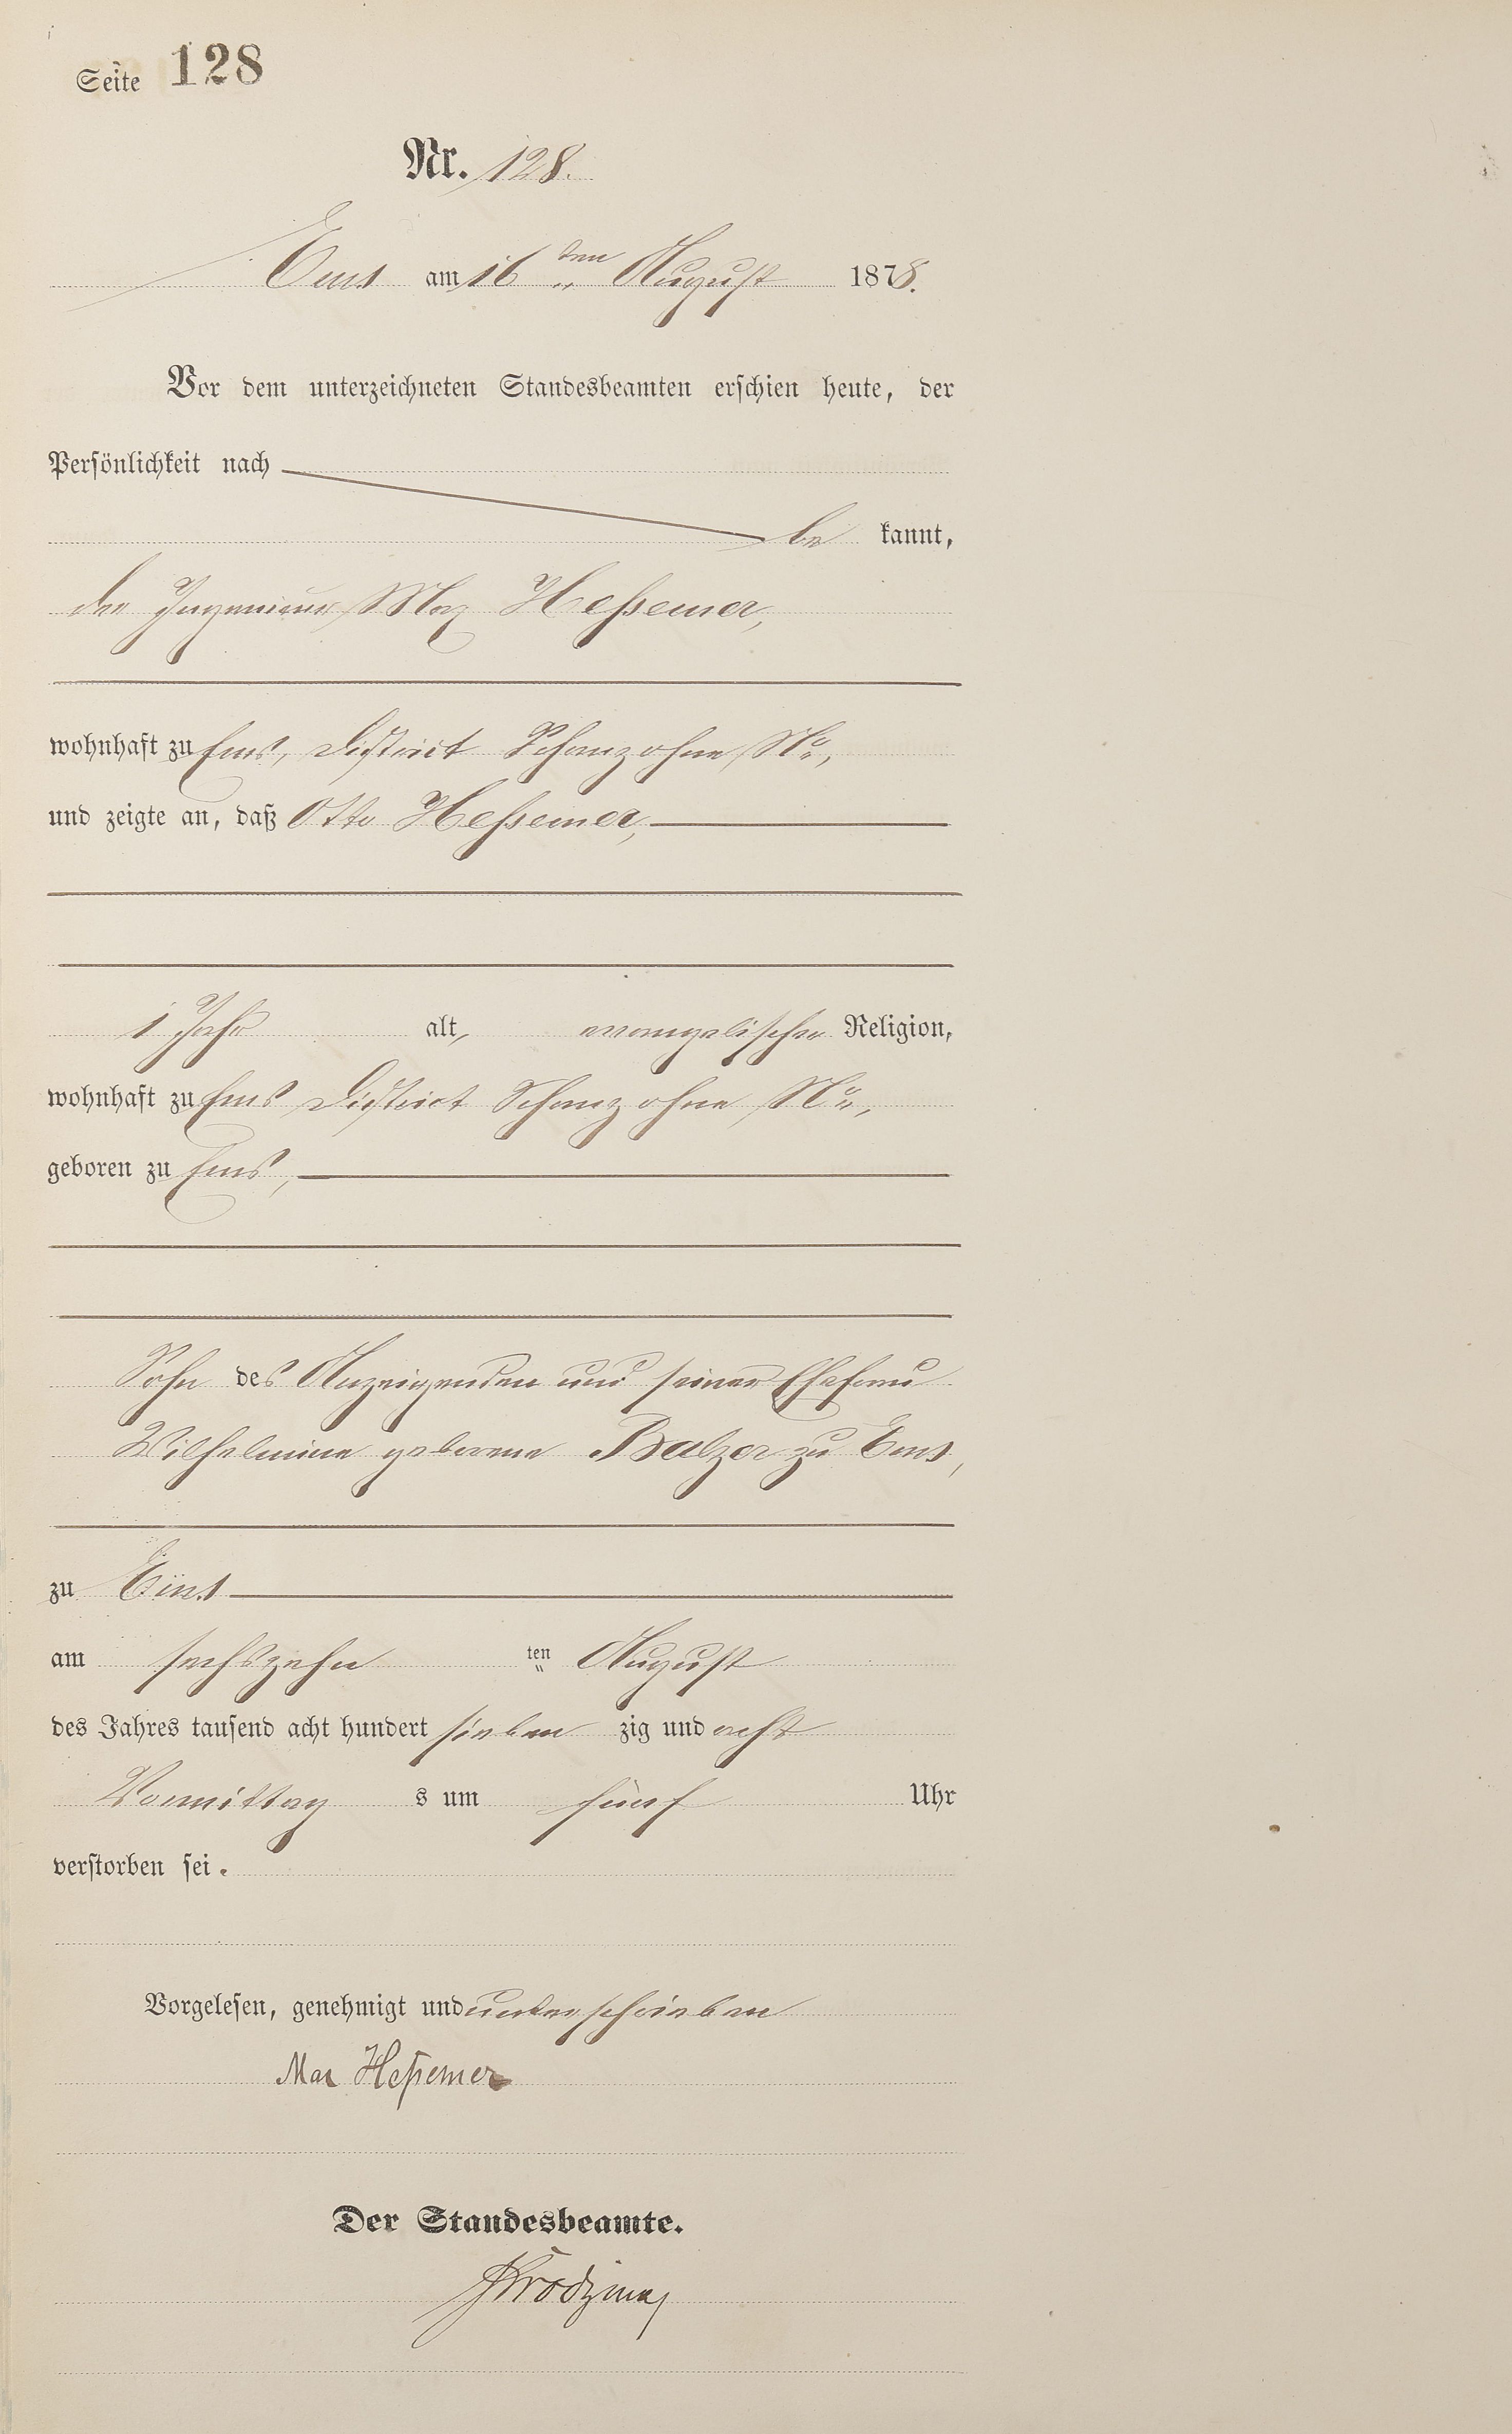 Seite 128
Nr. 128.
Ems am 16 ten August 1878.
Vor dem unterzeichneten Standesbeamten erschien heute, der
Persönlichkeit nach
be kannt,
der Ingenieur Max Heßemer,
wohnhaft zu Ems, District Schanz ohne No,
und zeigte an, daß Otto Heßemer,
1 Jahr alt, evangelischer Religion,
wohnhaft zu Ems District Schanz ohne No,
geboren zu Ems,
Sohn des Anzeigenden und seiner Ehefrau
Wilhelmine geborene Balzer zu Ems,
zu Ems
am sechszehn ten August
des Jahres tausend acht hundert sieben zig und acht
Vormittag s um fünf Uhr
verstorben sei.
Vorgelesen, genehmigt und unterschrieben
Max Heßemer
Der Standesbeamte.